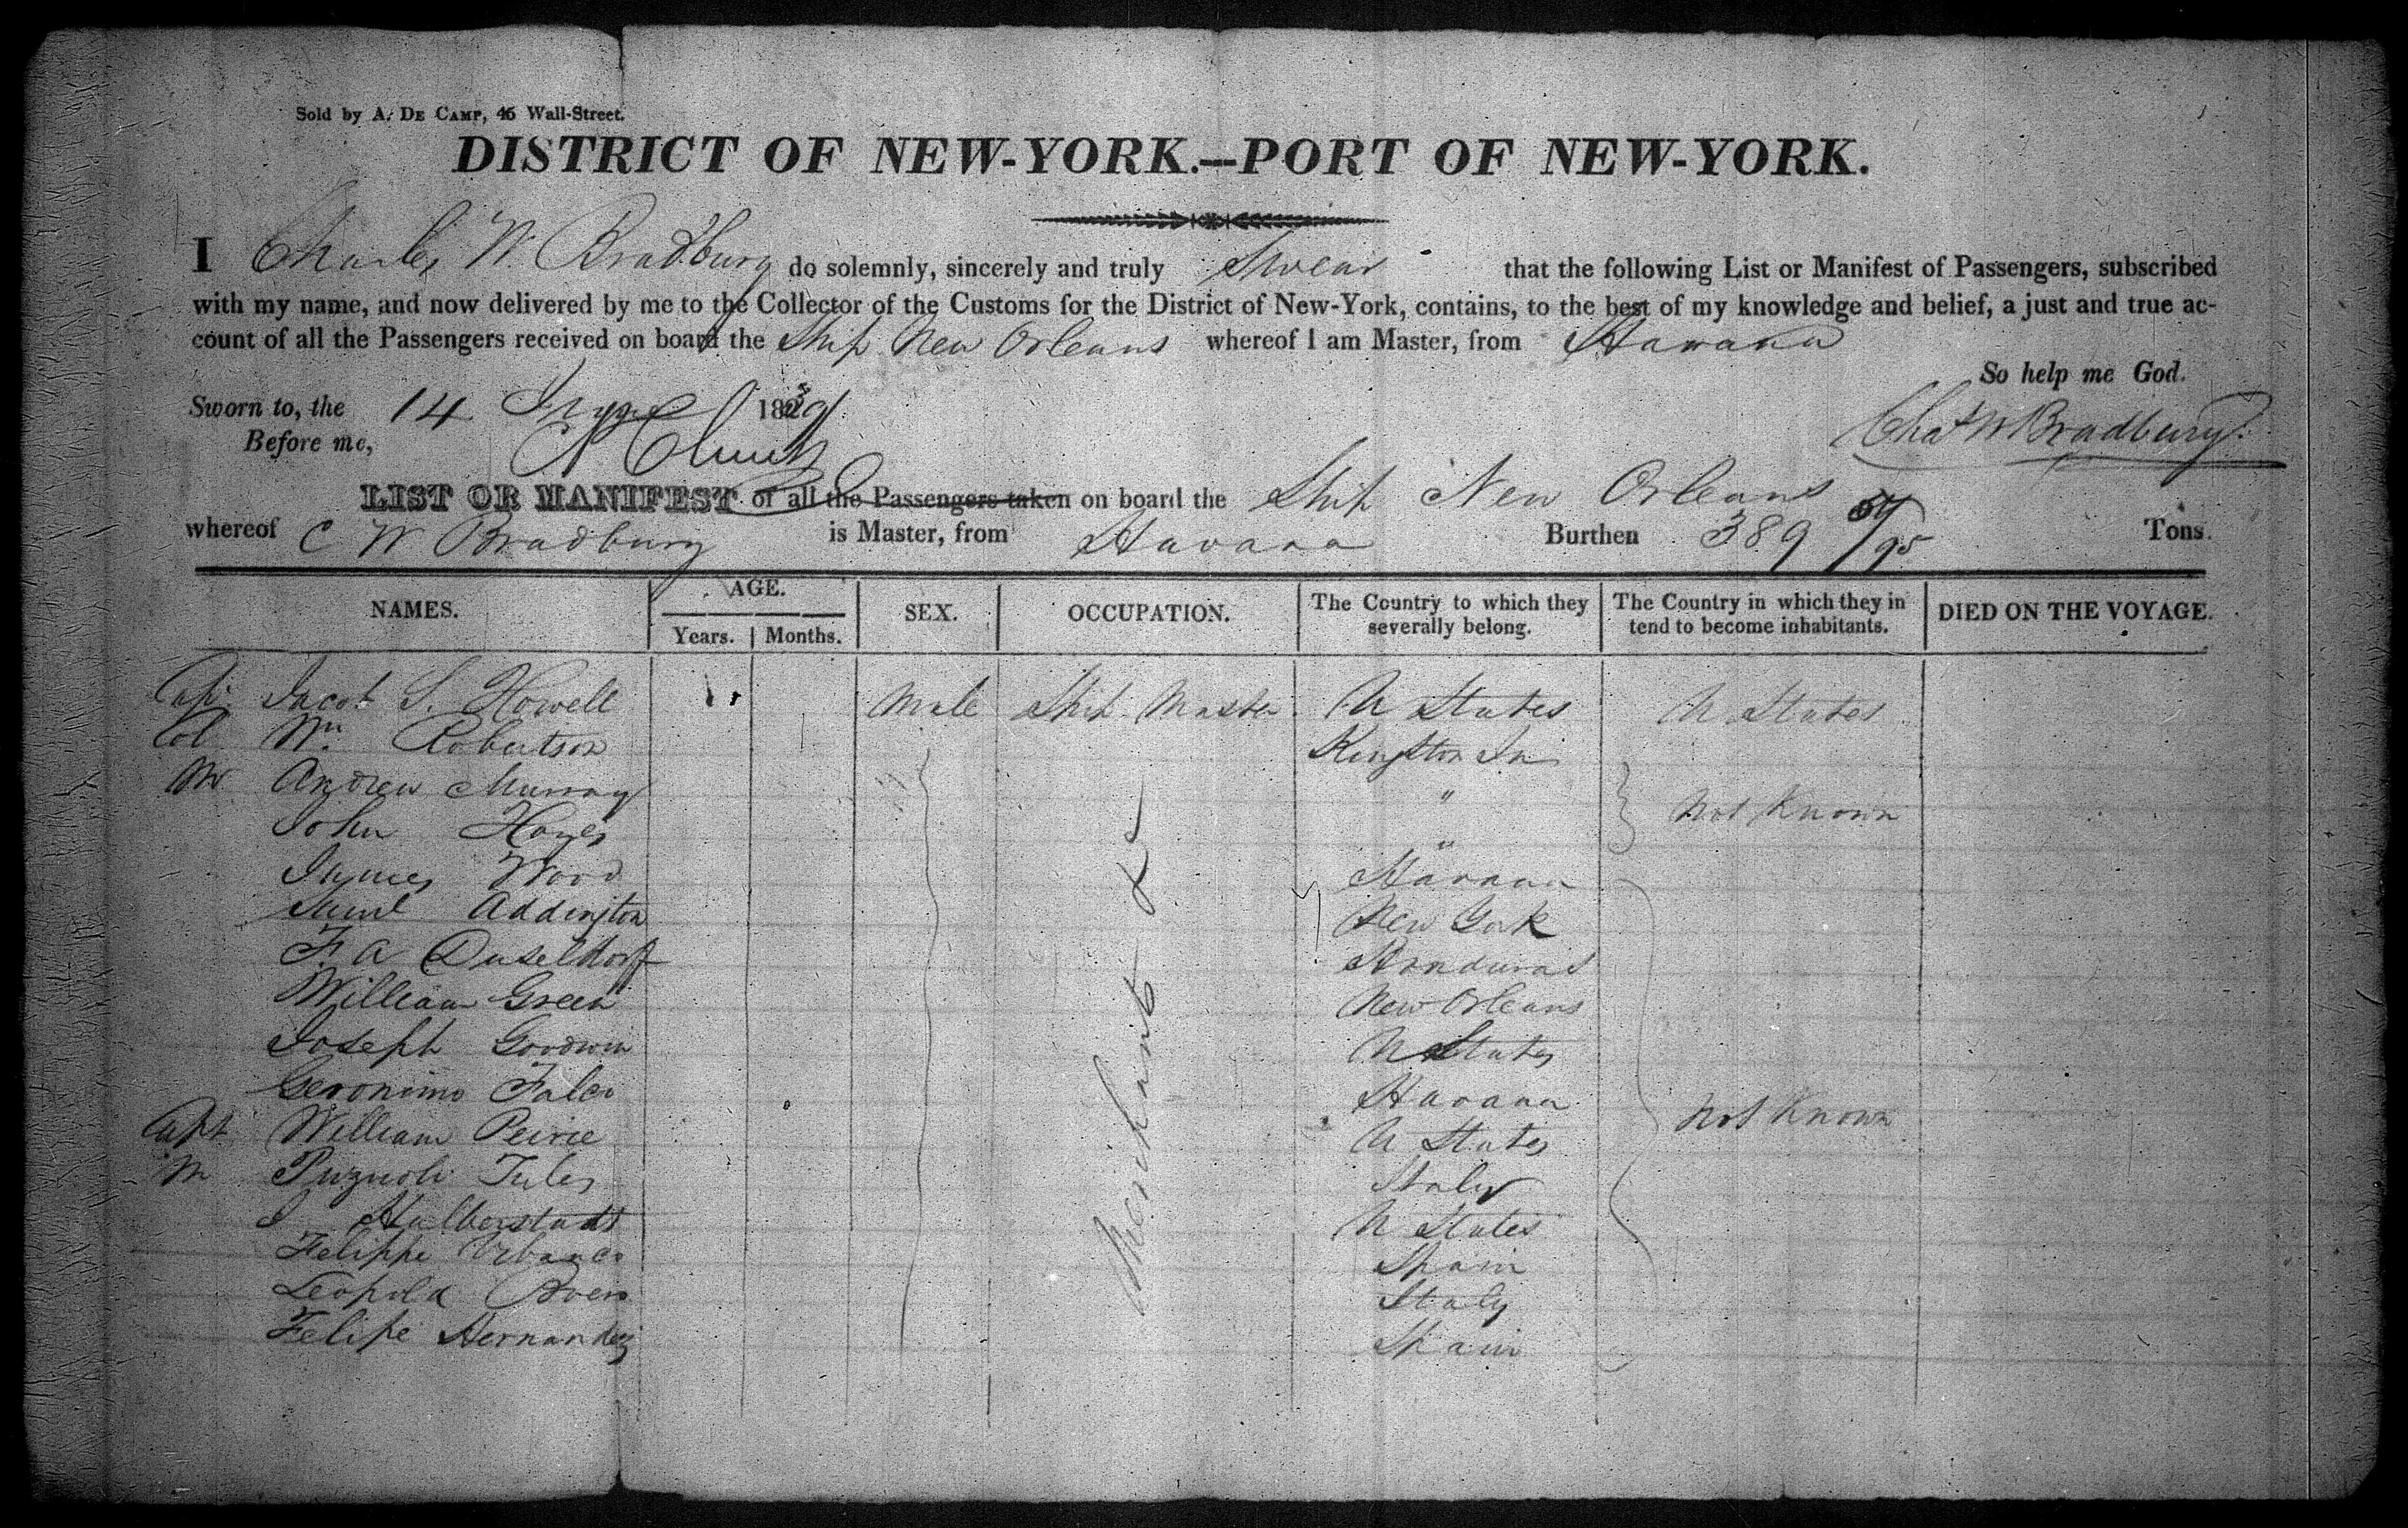 Sold by A. De Camp, 45 Wall-Street.
DISTRICT OF NEW-YORK.—PORT OF NEW-YORK.
I Charles W. Bradbury do solemnly, sincerely and truly Swear that the following List or Manifest of Passengers, subscribed
with my name, and now delivered by me to the Collector of the Customs for the District of New-York, contains, to the best of my knowledge and belief, a just and true ac-
count of all the Passengers received on board the Ship New Orleans whereof I am Master, from Havana
So help me God.
Sworn to, the 14 182
Before me,
Chas W Bradbury
LIST OR MANIFEST of all the Passengers taken on board the Ship New Orleans
whereof C W Bradbury is Master, from Havana Burthen 389 /95 Tons.
NAMES. AGE. SEX. OCCUPATION. The Country to which they severally belong. The Country in which they in tend to become inhabitants. DIED ON THE VOYAGE.
Years. Months.
Jacob S. Howell Male Ship Master U States U States
Col Wm Robertson Kingston
Mr Andrew Murray "
John Hayes " Not Known
James Wood Havana
Saml Addington New York
F. A Duseldorf Honduras
William Green New Orleans
Joseph Goodwin U States
Geronimo Falco Havana
Capt William Peirce U States Not Known
M Jules Italy
J Halberstadt U States
Felippe Urbanco Spain
Leopold Italy
Felipe Hernandez Spain
Merchants &c